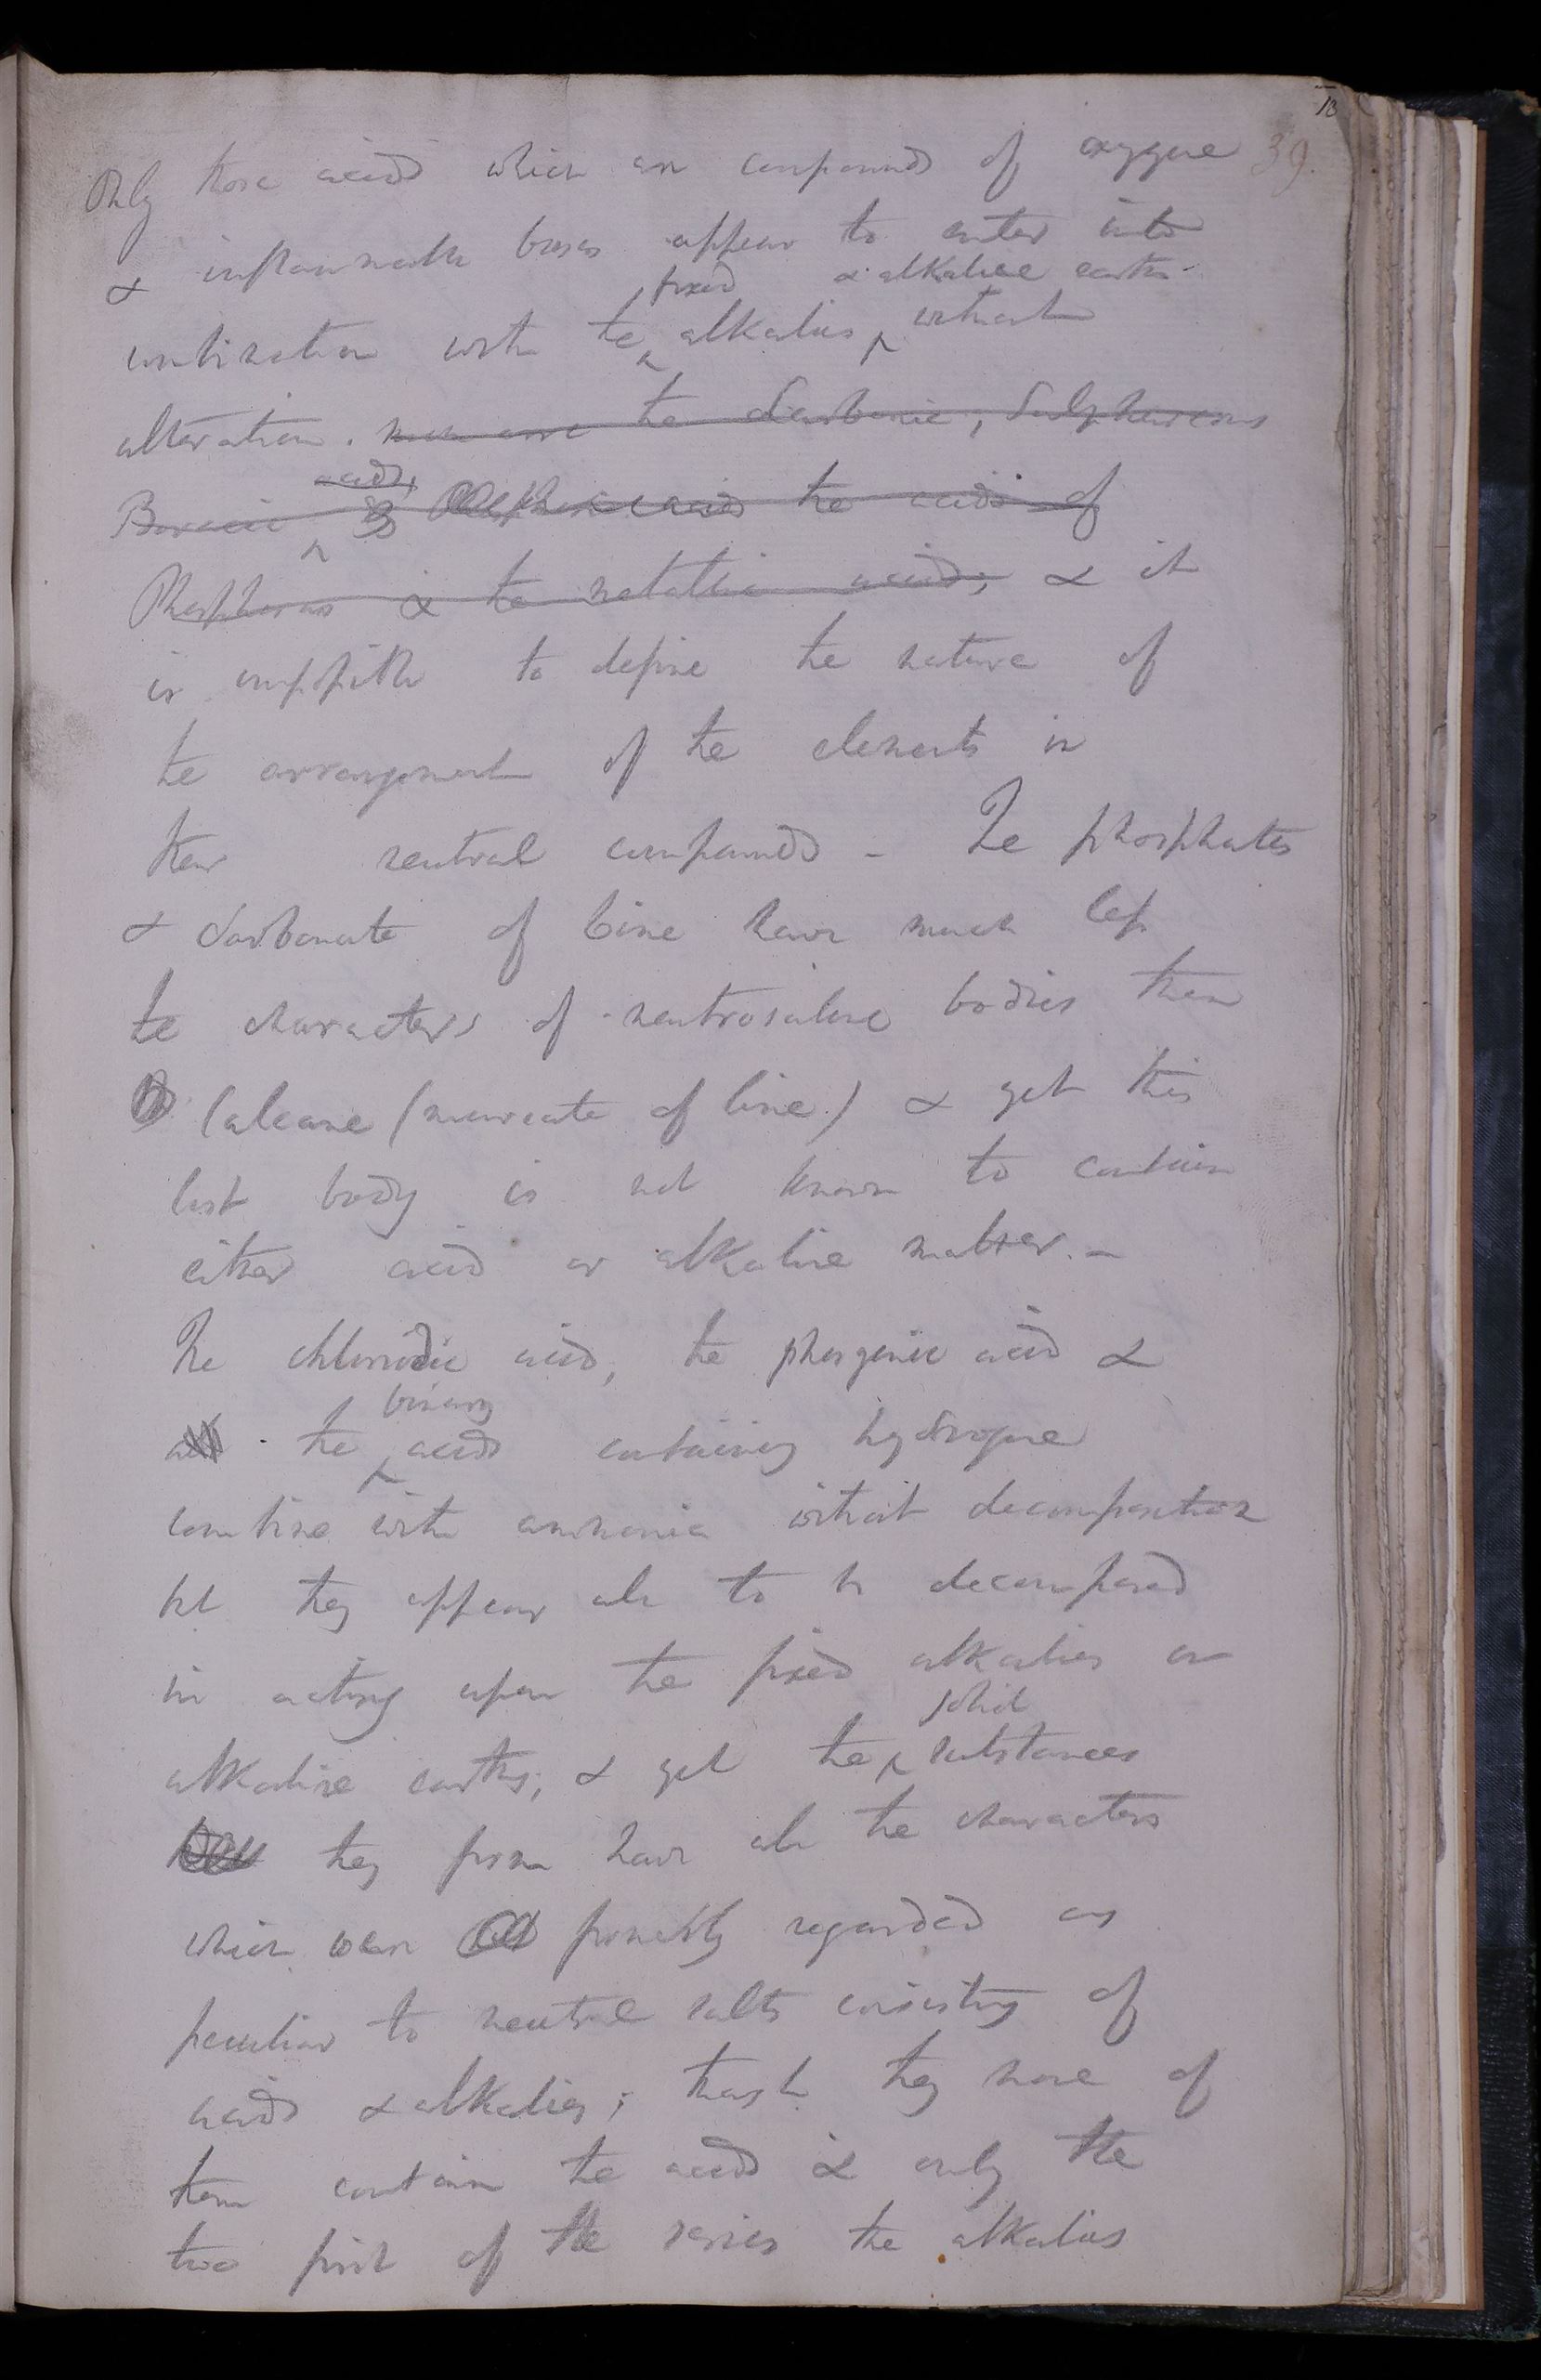 13
39.
Only those acids which are compounds of oxygene
& inflammable bases appear to enter into
fixed & alkaline earths
combination with the alkalies without
alteration. the Carbonic, Sulphureous
acids,
Boracic the acids of
Phosphorus & the metallic acids; & it
is impossible to define the nature of
the arrangement of the elements in
their neutral compounds - The phosphates
& Carbonate of lime have much less
the characters of neutrosaline bodies than
Calcane (muriate of lime) & yet this
last body is not known to contain
either acid or alkaline matter. -
The chloriodic acid, the phosgenic acid &
binary
all the acids containing hydrogene
combine with ammonia without decomposition
but they appear all to be decomposed
in acting upon the fixed alkalies or
solid
alkaline earths; & yet the substances
they form have all the characters
which were formerly regarded as
peculiar to neutral salts consisting of
acids & alkalies; though they none of
them contain the acids & only the
two first of the series the alkalies